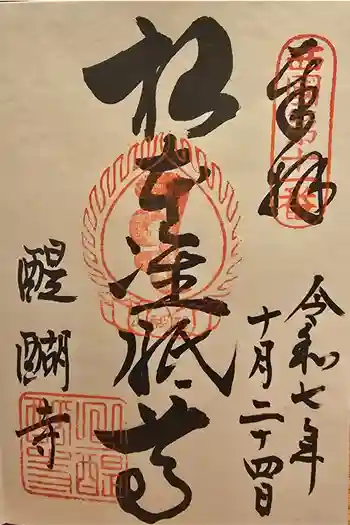 奉拝
令和七年
十月二十四日
根本准胝尊
醍醐寺